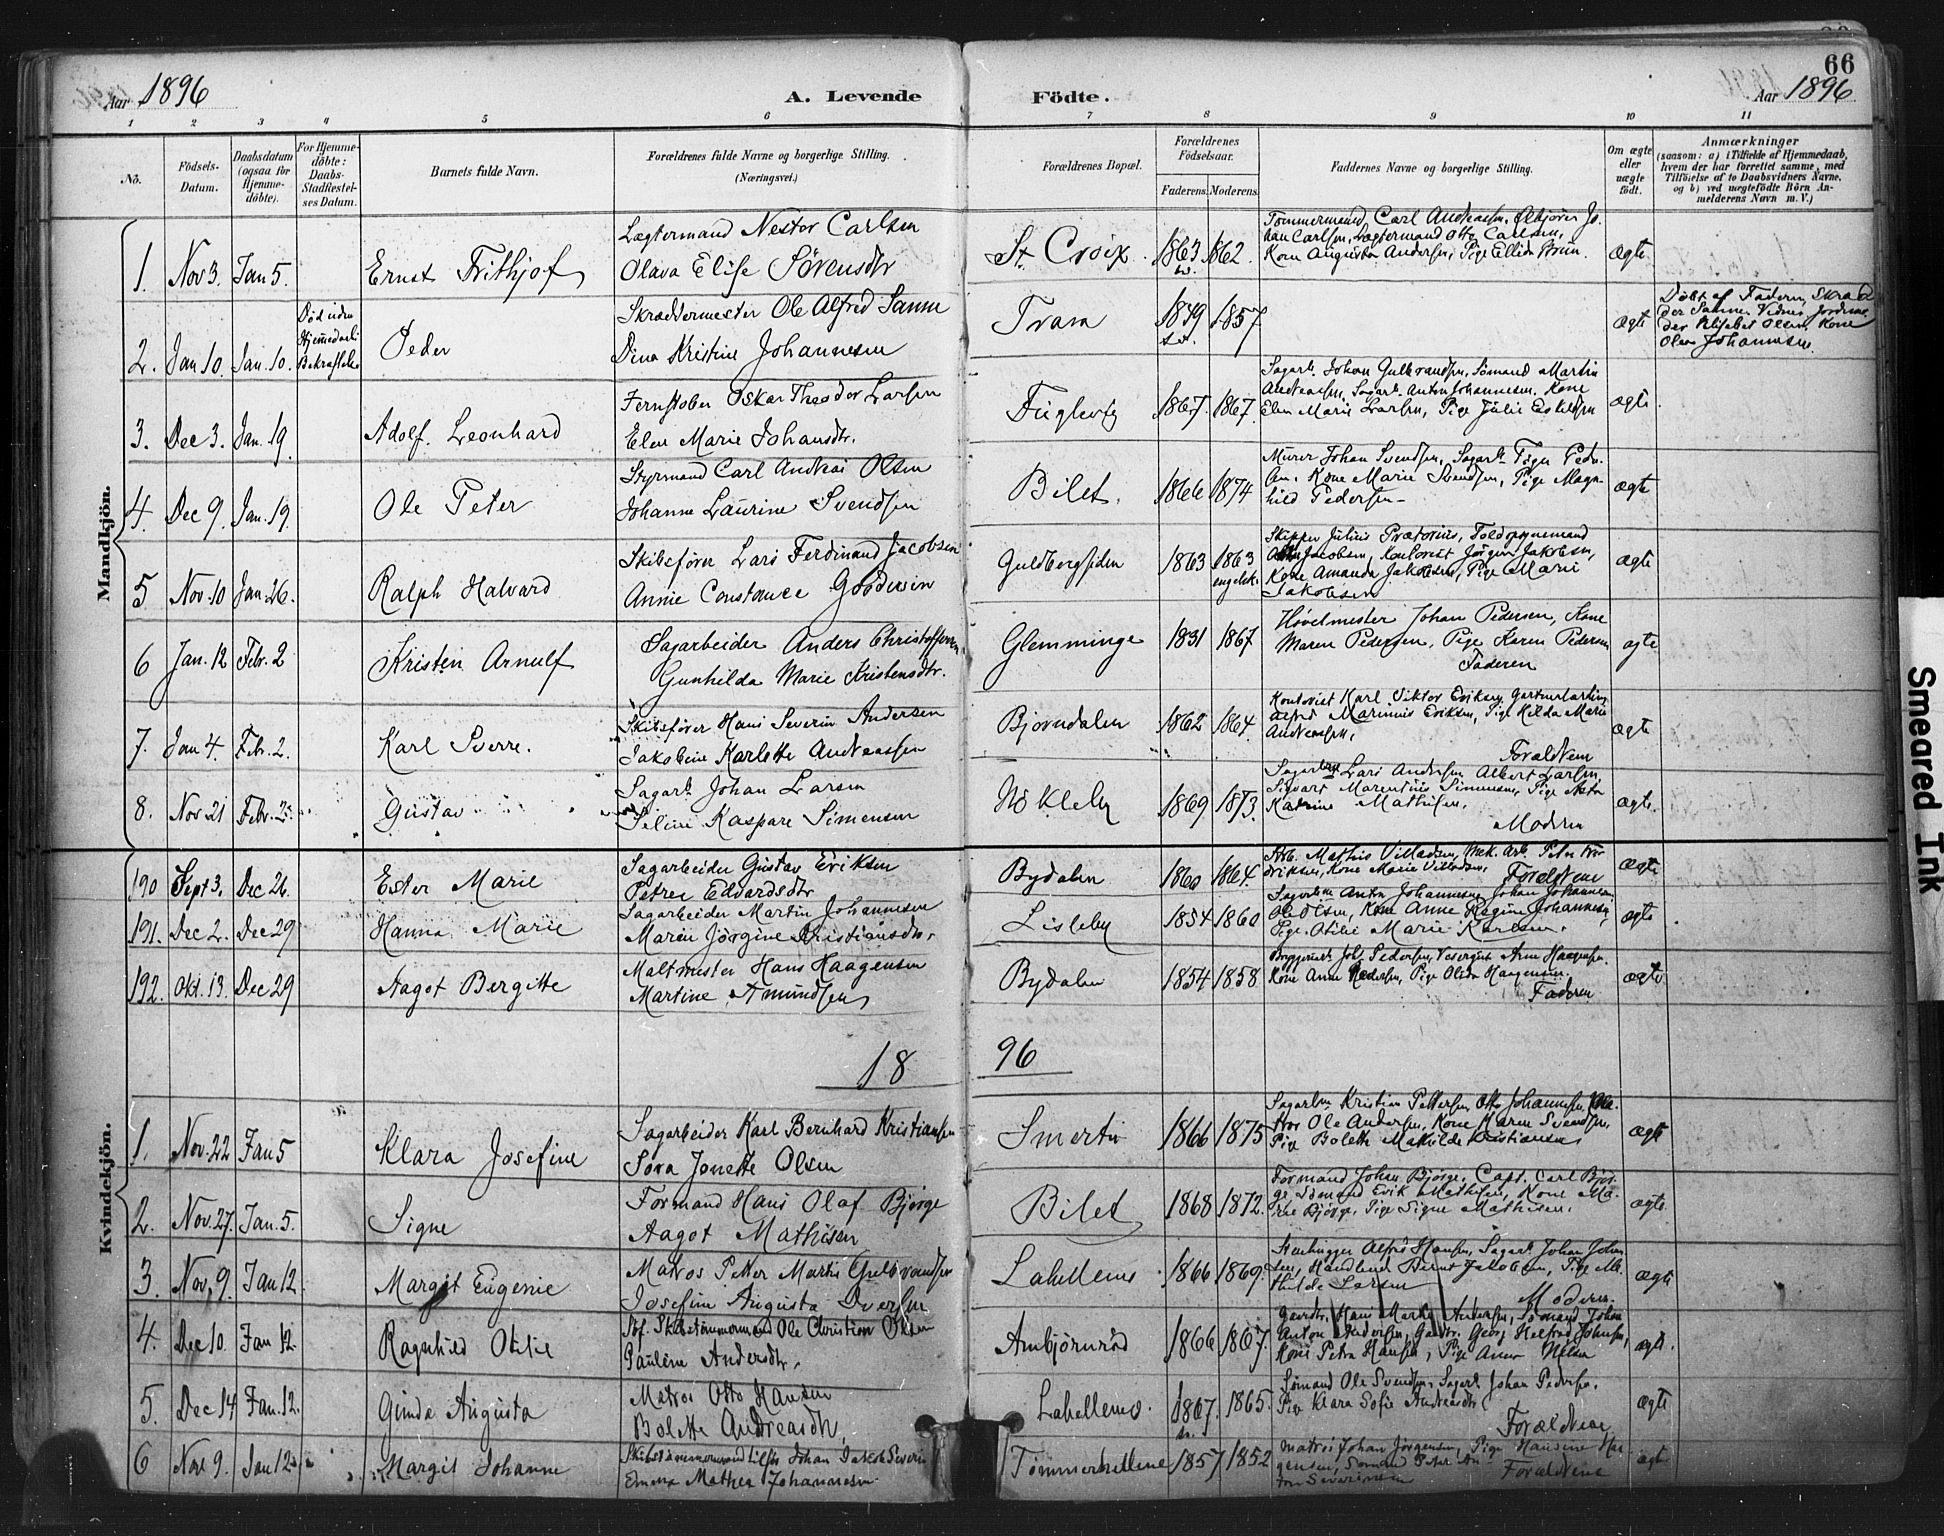 66
Aar 1896
A. Levende Födte.
Aar 1896
1 2 3 4 5 6 7 8 9 10 11
No.
Födsels-Datum.
Daabsdatum (ogsaa for Hjemme-döbte).
For Hjemme-döbte: Daabs-Stadfæstel-ses Datum.
Barnets fulde Navn.
Forældrenes fulde Navne og borgerlige Stilling.
(Næringsvei.)
Forældrenes Bopæl.
Forældrenes Födselsaar.
Faderens. Moderens.
Faddernes Navne og borgerlige Stilling.
Om ægte eller uægte födt.
Anmærkninger
(saasom: a) i Tilfælde af Hjemmedaab, hvem der har forrettet samme, med Tilföielse af to Daabsvidners Navne, og b) ved uegtefödte Börn An-melderens Navn m. V.)
Mandkjön.
1. Nov 3. Jan 5. Ernst Frithjof
Lægtermand Nestor Carlsen
Olava Elise Sörensdtr
St. Croix. 1863 1862.
Tømmermand Carl Andreassen, Ølkjører Jo-
han Carlsen, Lægtermand Otto Carlsen,
Kone Augusta Andersen, Pige Ellida Brun.
ægte
2. Jan 10. Jan. 10. Peder
Skræddermester Ole Alfred Sanne
Dina Kristine Johannesen
Trara 1849 1857
ægte
Döbt af Faderen, Skræd
der Sanne. Vidner Jordmo-
der Elisabet Olsen, Kone
Olea Johannesen.
3. Dec 3. Jan. 19. Adolf Leonhard
Jernstøber Oskar Theodor Larsen
Elen Marie Johansdtr.
Fuglevig 1867. 1867.
Sagarb. Johan Gulbrandsen, Sömand Martin
Andreassen, Sagarb. Anton Johannesen, Kone
Elen Marie Larsen, Pige Julie Eskildsen
ægte.
4. Dec 9. Jan. 19. Ole Peter
Styrmand Carl Andreas Olsen
Johanne Laurine Svendsen
Bilet. 1866 1874
Murer Johan Svendsen, Sagarb. Peder-
sen. Kone Marie Svendsen, Pige Magn-
hild Pedersen
ægte
5 Nov. 10 Jan. 26. Ralph Halvard
Skibsfører Lars Ferdinand Jacobsen
Annie Constance Goodwin
Guldbergsiden 1863 1863 engelsk.
Skipper Julius Prætorius, Toldopsynsmand
Jacobsen, Kontorist Jörgen Jakobsen,
Kone Amanda Jakobsen, Pige Marie
Jakobsen
ægte
6 Jan. 12 Febr. 2 Kristen Arnulf
Sagarbeider Anders Christoffersen
Gunhilda Marie Kristensdtr.
Glemminge 1831 1867
Høvelmester Johan Pedersen, Kone
Maren Pedersen, Pige Karen Pedersen
Faderen
ægte
7. Jan 4. Febr. 2. Karl Sverre.
Skibsfører Hans Severin Andersen
Jakobine Karlotte Andreassen
Bjorndalen 1862 1864.
Kontorist Karl Viktor Eriksen,
Alfred Marinius Eriksen, Pige Hilda Marie
Andreassen,
Forældrene
ægte
8. Nov. 21 Febr. 2. Gustav
Sagarb. Johan Larsen
Seline Kaspara Simensen
Nökleby 1869 1873.
Lars Andersen, Albert Larsen,
Sigvart Marentius Simensen, Pige
Katrine Mathisen,
Modren
ægte.
Kvindekjön.
190 Sept 3. Dec 26. Ester Marie
Sagarbeider Gustav Eriksen
Petrea Edvardsdtr
Bydalen 1860 1864.
Arb. Mathis Villadsen, Mek. Arb. Peter Fre-
driksen, Kone Marie Villadsen, Forældrene
ægte
191. Dec 2. Dec 29 Hanna Marie
Sagarbeider Martin Johannesen
Maren Jörgine Kristiansdtr.
Lisleby 1854 1860
Anton Johannesen, Johan Johannesen
Ole Olsen, Kone Anne Regine Johannesen,
Pige Otilie Marie Karlsen.
ægte
192. Okt. 13. Dec 29 Aagot Bergitte
Maltmester Hans Haagensen
Martine Amundsen
Bydalen 1854 1858
Joh. Pedersen, Arne Haagensen.
Kone Anne Pedersen, Pige Olida Haagensen.
Faderen
ægte
18 96
1. Nov. 22 Jan 5 Klara Josefine
Sagarbeider Karl Bernhard Kristiansen
Sova Jonette Olsen
Smertu 1866 1875
Kristian Pettersen, Otto Johannesen,
Ole Andersen, Kone Karen Svendsen,
Pige Bolette Mathilde Kristiansen
ægte
2. Nov. 27. Jan. 5. Signe
Formand Hans Olaf Björge
Aagot Mathisen
Bilet 1868 1872.
Formand Johan Björge, Capt. Carl Björ-
ge, Sömand Erik Mathisen, Kone Ma-
rie Björge, Pige Signe Mathisen.
ægte
3. Nov. 9. Jan 12. Margit Eugenie
Matros Petter Martin Gulbrandsen
Josefine Augusta Iversen
Lahellens 1866 1869.
Stenhugger Alfred Hansen, Sagarb. Johan Johan-
sen, Handlende Bernt Jakobsen, Pige Ma-
thilde Larsen
Modren.
ægte
4. Dec 10. Jan 12. Ragnhild Otilie
Skibstömmermand Ole Christian Olsen
Pauline Andersdtr.
Ambjörnröd 1866 1867.
Hans Martin Andersen, Sömand Johan
Anton Andersen, Georg Helfred Johnsen,
Kone Petra Hansen, Pige Anna Nilsen
ægte.
5. Dec 14 Jan. 12. Ginda Augusta
Matros Otto Hansen
Bolette Andreasdtr.
Lahellens. 1867. 1865.
Sömand Ole Svendsen, Sagarb. Johan Pedersen,
Pige Klara Sofie Andreasdtr
Forældrene
ægte
6 Nov 9. Jan 12 Margit Johanne
Johan Jakob Severin
Emma Mathea Johannesen
Tömmerhellene 1857 1852
Matros Johan Jörgensen, Pige Hansine Haa-
gensen, Sömand Peter An
ton Severinsen
Forældrene
ægte
Smeared Ink